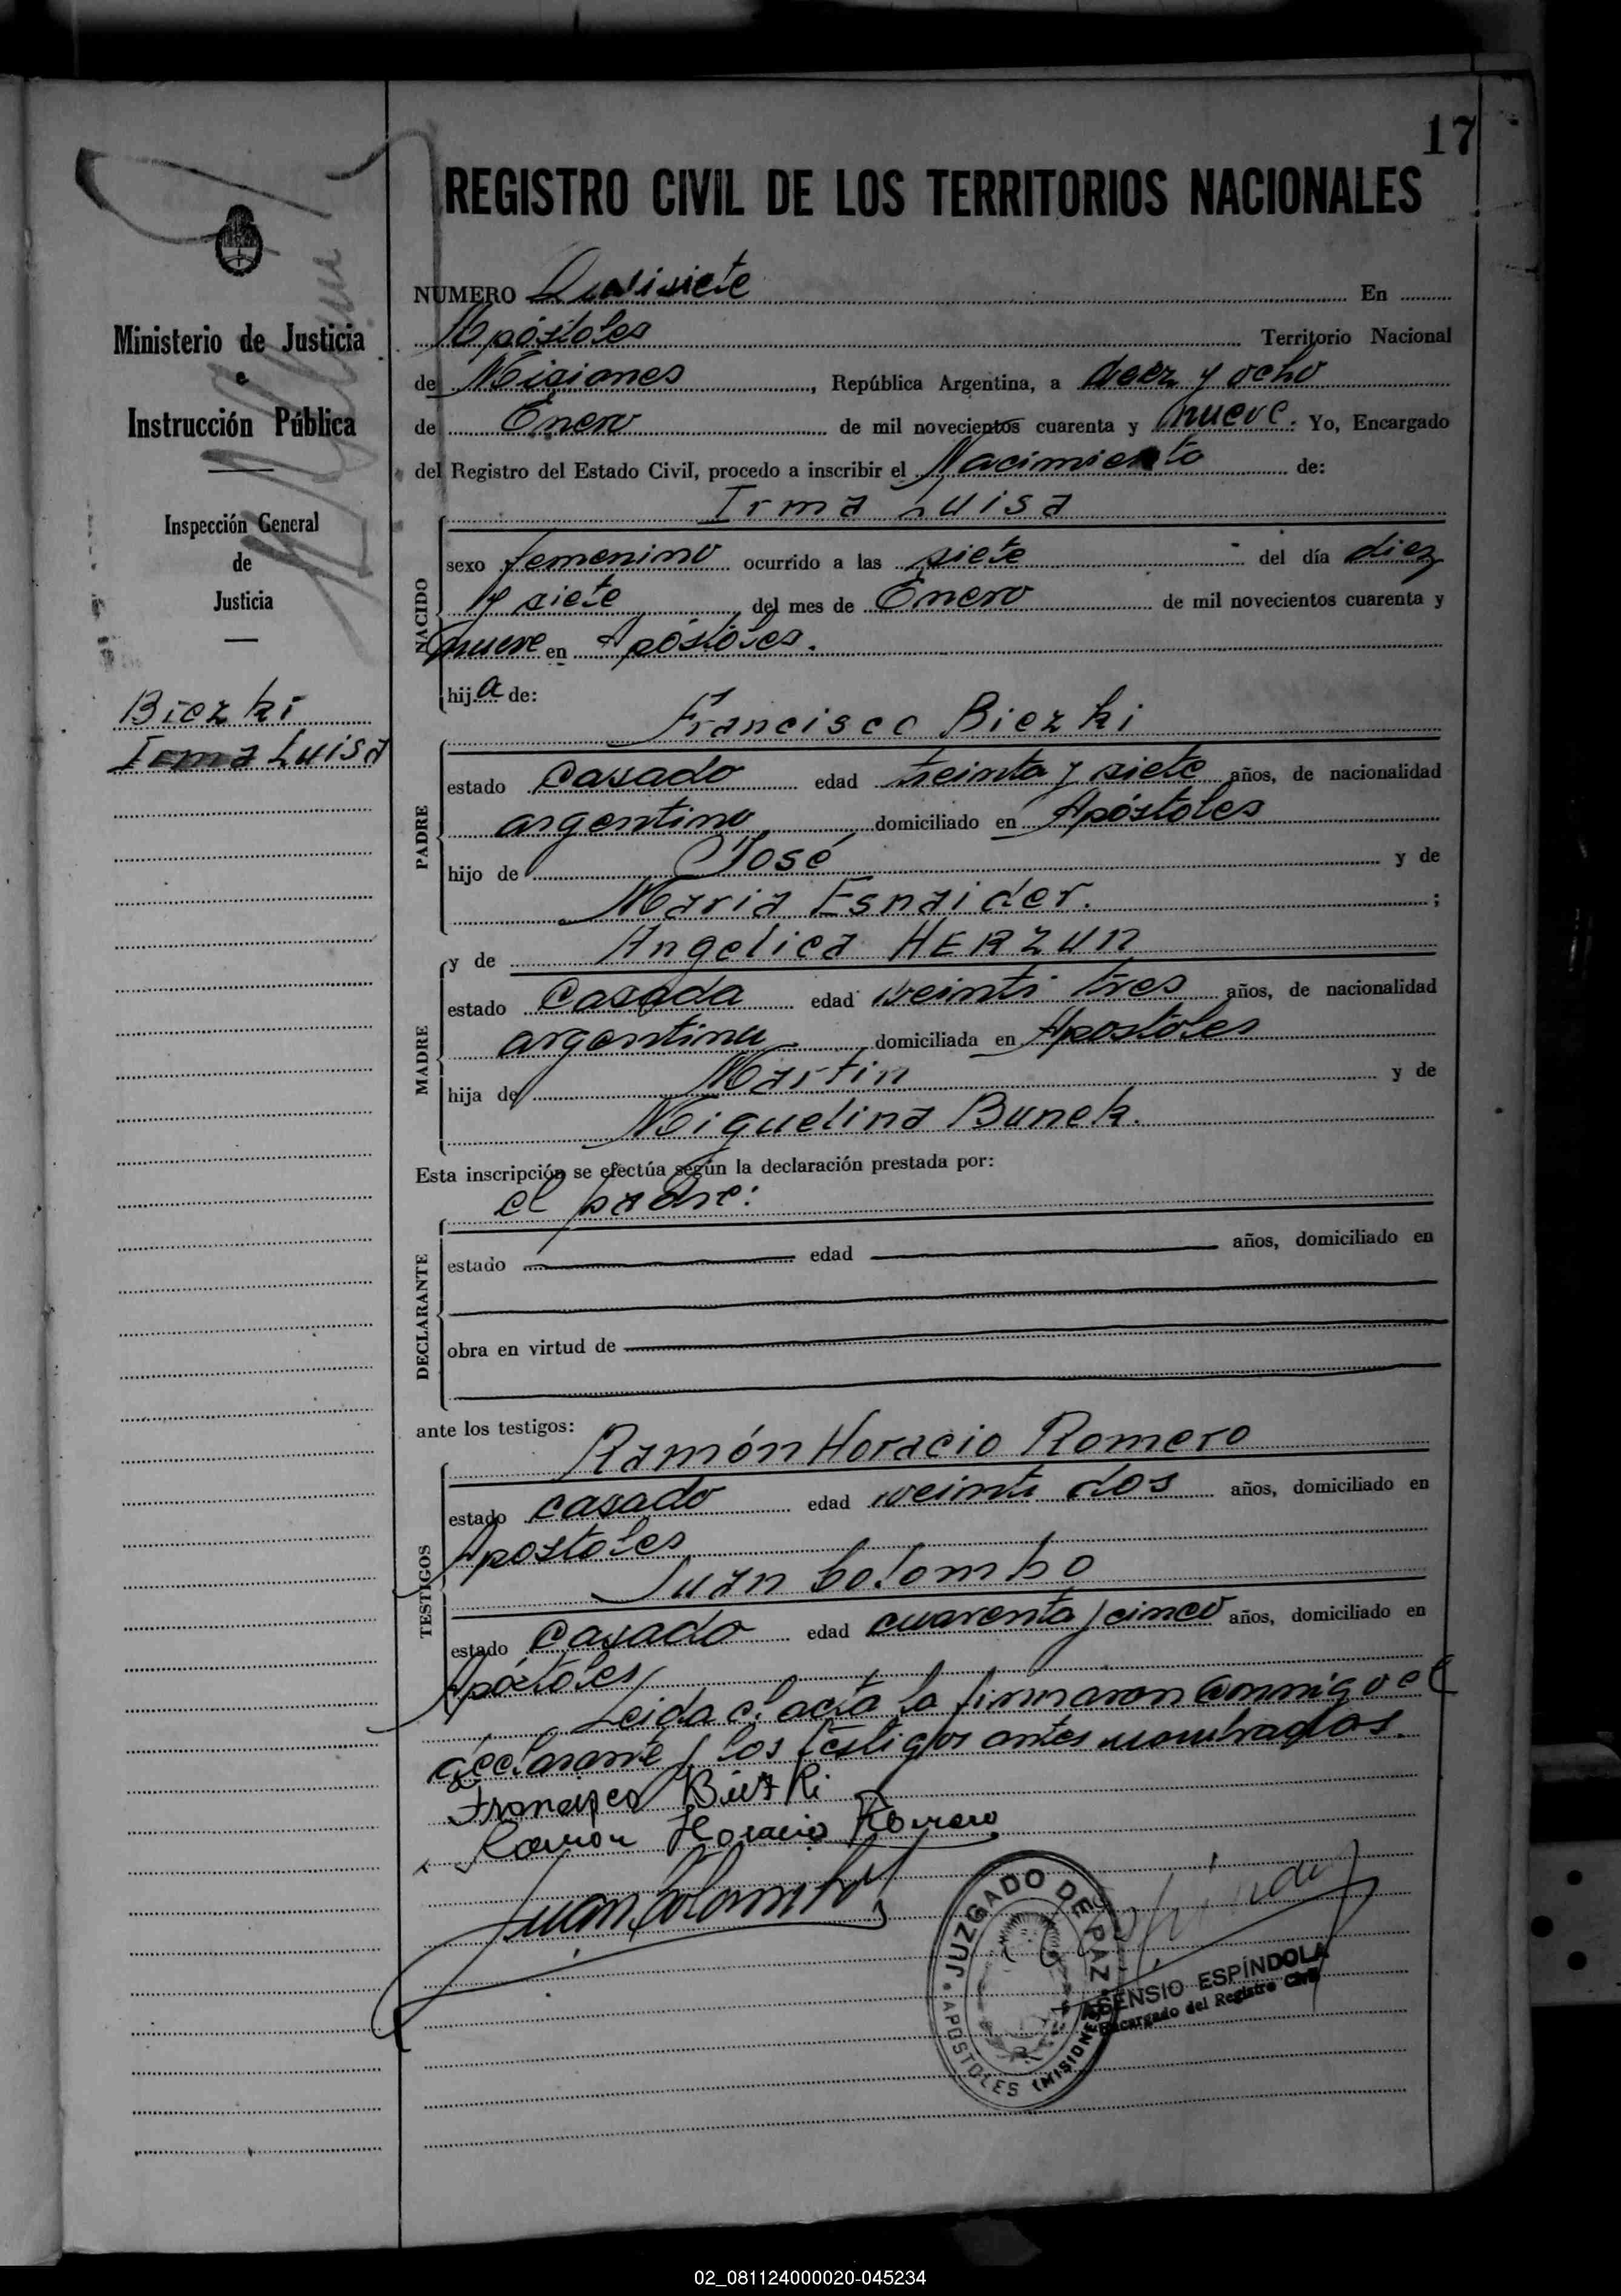 17
REGISTRO CIVIL DE LOS TERRITORIOS NACIONALES
Ministerio de Justicia
e
Instrucción Pública
Inspección General
de
Justicia
Biezki
Irma Luisa
NUMERO Diecisiete En
Apóstoles Territorio Nacional
de Misiones, República Argentina, a diez y ocho
de Enero de mil novecientos cuarenta y nueve. Yo, Encargado
del Registro del Estado Civil, procedo a inscribir el Nacimiento de:
Irma Luisa
NACIDO
sexo femenino ocurrido a las siete del día diez
y siete del mes de Enero de mil novecientos cuarenta y
nueve en Apóstoles.
hija de:
Francisco Biezki
PADRE
estado Casado edad treinta y siete años, de nacionalidad
argentino domiciliado en Apóstoles
hijo de José y de
Maria Esnaider. ;
y de Angelica HERZUN
MADRE
estado Casada edad veinti tres años, de nacionalidad
argentina domiciliada en Apostoles
hija de Martin y de
Miguelina Bunek.
Esta inscripción se efectúa según la declaración prestada por:
el padre:
DECLARANTE
estado edad años, domiciliado en
obra en virtud de
ante los testigos:
Ramón Horacio Romero
TESTIGOS
estado casado edad veinti dos años, domiciliado en
Apostoles
Juan Colombo
estado Casado edad cuarenta y cinco años, domiciliado en
Apóstoles
Leida el acta la firmaron conmigo el
declarante y los testigos antes nombrados.
Francisco Biezki
Ramon Horacio Romero
Juan Colombo
JUZGADO DE PAZ
APOSTOLES (MISIONES)
ASENSIO ESPÍNDOLA
Encargado del Registro Civil
02_081124000020-045234